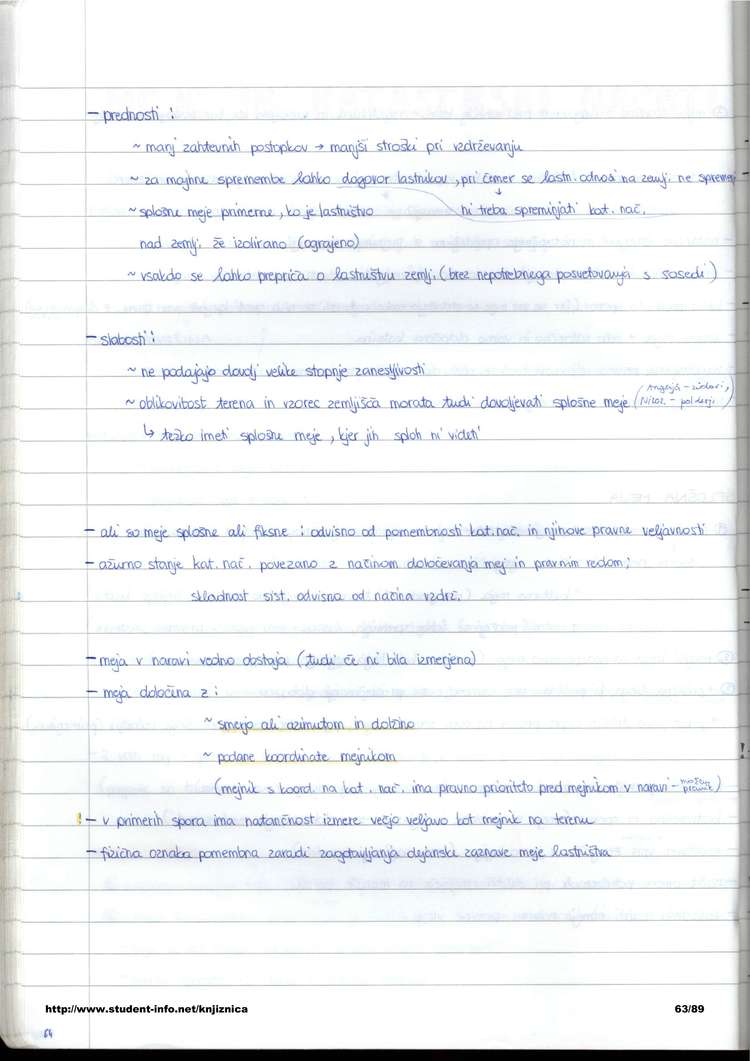 - prednosti:
~ manj zahtevnih postopkov → manjši stroški pri vzdrževanju
~ za majhne spremembe lahko dogovor lastnikov, pri čemer se lastn. odnosi na zemlji. ne spreme
~ splošne meje primerne, ko je lastništvo
ni treba spreminjati kat. nač.
nad zemlj. že izolirano (ograjeno)
~ vsakdo se lahko prepriča o lastništvu zemlj. (brez nepotrebnega posvetovanja s sosedi)
- slabosti:
~ ne podajajo dovolj velike stopnje zanesljivosti
~ oblikovitost terena in vzorec zemljišča morata tudi dovoljevati splošne meje (Anglija - zidovi, Nizoz. - polderji)
↳ težko imeti splošne meje, kjer jih sploh ni videti
- ali so meje splošne ali fiksne: odvisno od pomembnosti kat. nač. in njihove pravne veljavnosti
- ažurno stanje kat. nač. povezano z načinom določevanja mej in pravnim redom;
skladnost sist. odvisna od načina vzdrž.
- meja v naravi vedno obstaja (tudi če ni bila izmerjena)
- meja določina z:
~ smerjo ali azimutom in dolžino
~ podane koordinate mejnikom
(mejnik s koord. na kat. nač. ima pravno prioriteto pred mejnikom v naravi -
! - v primerih spora ima natančnost izmere večjo veljavo kot mejnik na terenu
- fizična oznaka pomembna zaradi zagotavljanja dejanske zaznave meje lastništva
http://www.student-info.net/knjiznica
63/89
64